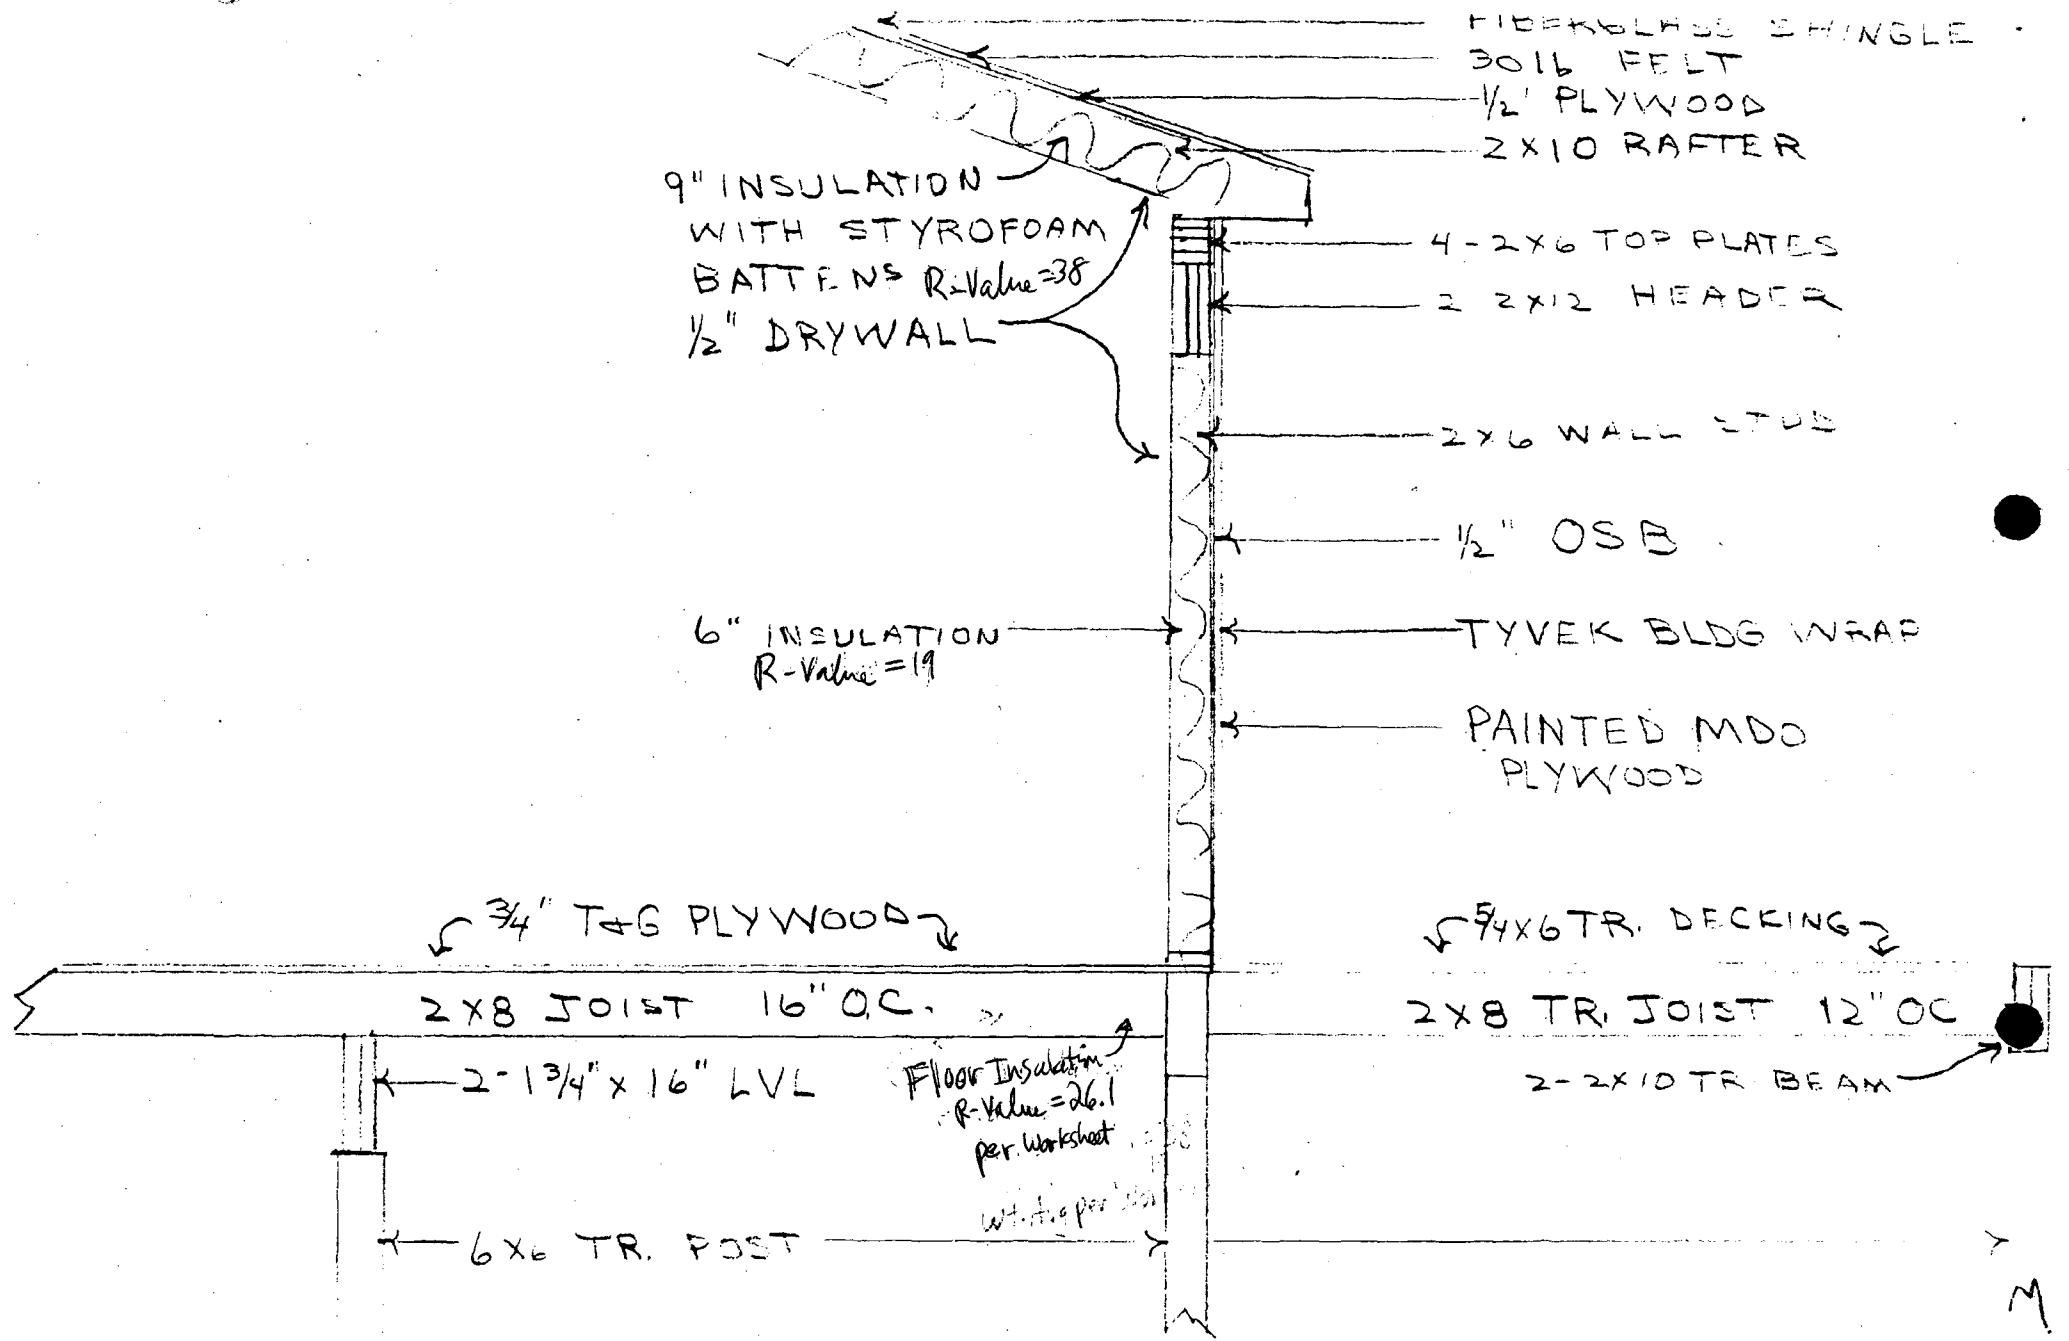 FIBERGLASS SHINGLE
30 lb FELT
1/2' PLYWOOD
2X10 RAFTER
9" INSULATION
WITH STYROFOAM
BATTENS R-Value=38
1/2" DRYWALL
4-2X6 TOP PLATES
2 2X12 HEADER
2X6 WALL STUD
1/2" OSB
6" INSULATION
R-Value=19
TYVEK BLDG WRAP
PAINTED MDO
PLYWOOD
3/4" T&G PLYWOOD
5/4X6 TR. DECKING
2X8 JOIST 16" O.C.
2X8 TR. JOIST 12" OC
2-1 3/4" X 16" LVL
Floor Insulation
R-Value=26.1
per Worksheet
2-2X10 TR BEAM
6X6 TR. POST
M